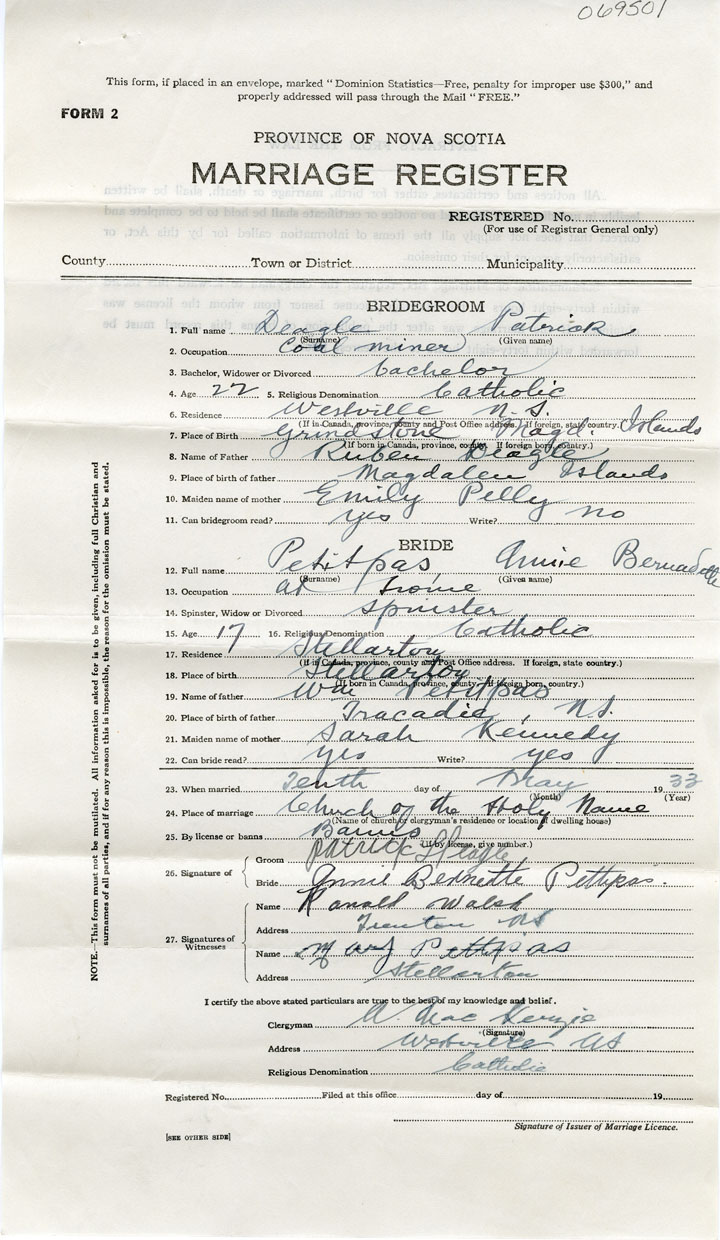 069501
This form, if placed in an envelope, marked "Dominion Statistics—Free, penalty for improper use $300," and
properly addressed will pass through the Mail "FREE."
FORM 2
PROVINCE OF NOVA SCOTIA
MARRIAGE REGISTER
REGISTERED No.
(For use of Registrar General only)
County Town or District Municipality
BRIDEGROOM
1. Full name Deagle Patrick
(Surname) (Given name)
2. Occupation Coal miner
3. Bachelor, Widower or Divorced bachelor
4. Age 22 5. Religious Denomination Catholic
6. Residence Westville N.S.
(If in Canada, province, county and Post Office address. If foreign, state country.)
7. Place of Birth Grindstone Magd. Islands
(If born in Canada, province, county. If foreign born, country.)
8. Name of Father Ruben Deagle
9. Place of birth of father Magdalen Islands
10. Maiden name of mother Emily Pelly
11. Can bridegroom read? yes Write? no
BRIDE
12. Full name Petitpas Annie Bernadette
(Surname) (Given name)
13. Occupation at home
14. Spinster, Widow or Divorced spinster
15. Age 17 16. Religious Denomination Catholic
17. Residence Stellarton
(If in Canada, province, county and Post Office address. If foreign, state country.)
18. Place of birth Stellarton
(If born in Canada, province, county. If foreign born, country.)
19. Name of father Wm Petitpas
20. Place of birth of father Tracadie, N.S.
21. Maiden name of mother Sarah Kennedy
22. Can bride read? yes Write? yes
23. When married Tenth day of May 1933
(Month) (Year)
24. Place of marriage Church of the Holy Name
(Name of church or clergyman's residence or location of dwelling house)
25. By license or banns Banns
(If by license, give number.)
26. Signature of Groom Patrick Deagle
Bride Annie Bernette Pettipas.
27. Signatures of Witnesses Name Ronald Walsh
Address Trenton NS
Name Mary Pettipas
Address Stellarton
I certify the above stated particulars are true to the best of my knowledge and belief.
Clergyman MacKenzie
(Signature)
Address Westville NS
Religious Denomination Catholic
Registered No. Filed at this office day of 19
Signature of Issuer of Marriage Licence.
[SEE OTHER SIDE]
NOTE.—This form must not be mutilated. All information asked for is to be given, including full Christian and
surnames of all parties, and if for any reason this is impossible, the reason for the omission must be stated.